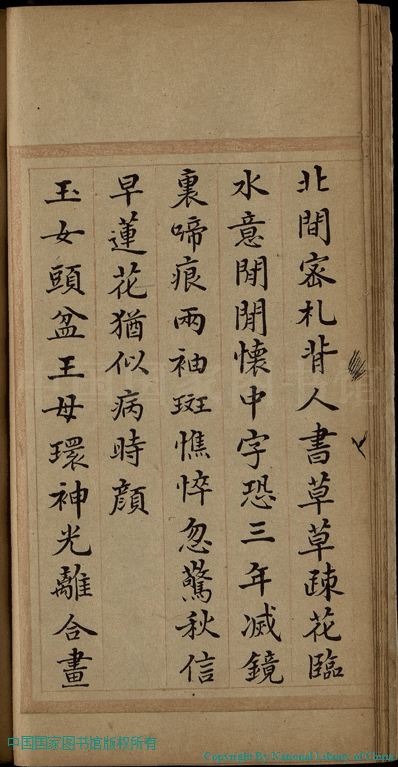 北間密札背人書草草疎花臨
水意閒閒懷中字恐三年滅鏡
裏啼痕兩袖斑憔悴忽驚秋信
早蓮花猶似病時顔
玉女頭盆王母環神光離合畫
中国国家图书馆版权所有
Copyright By National Library of China